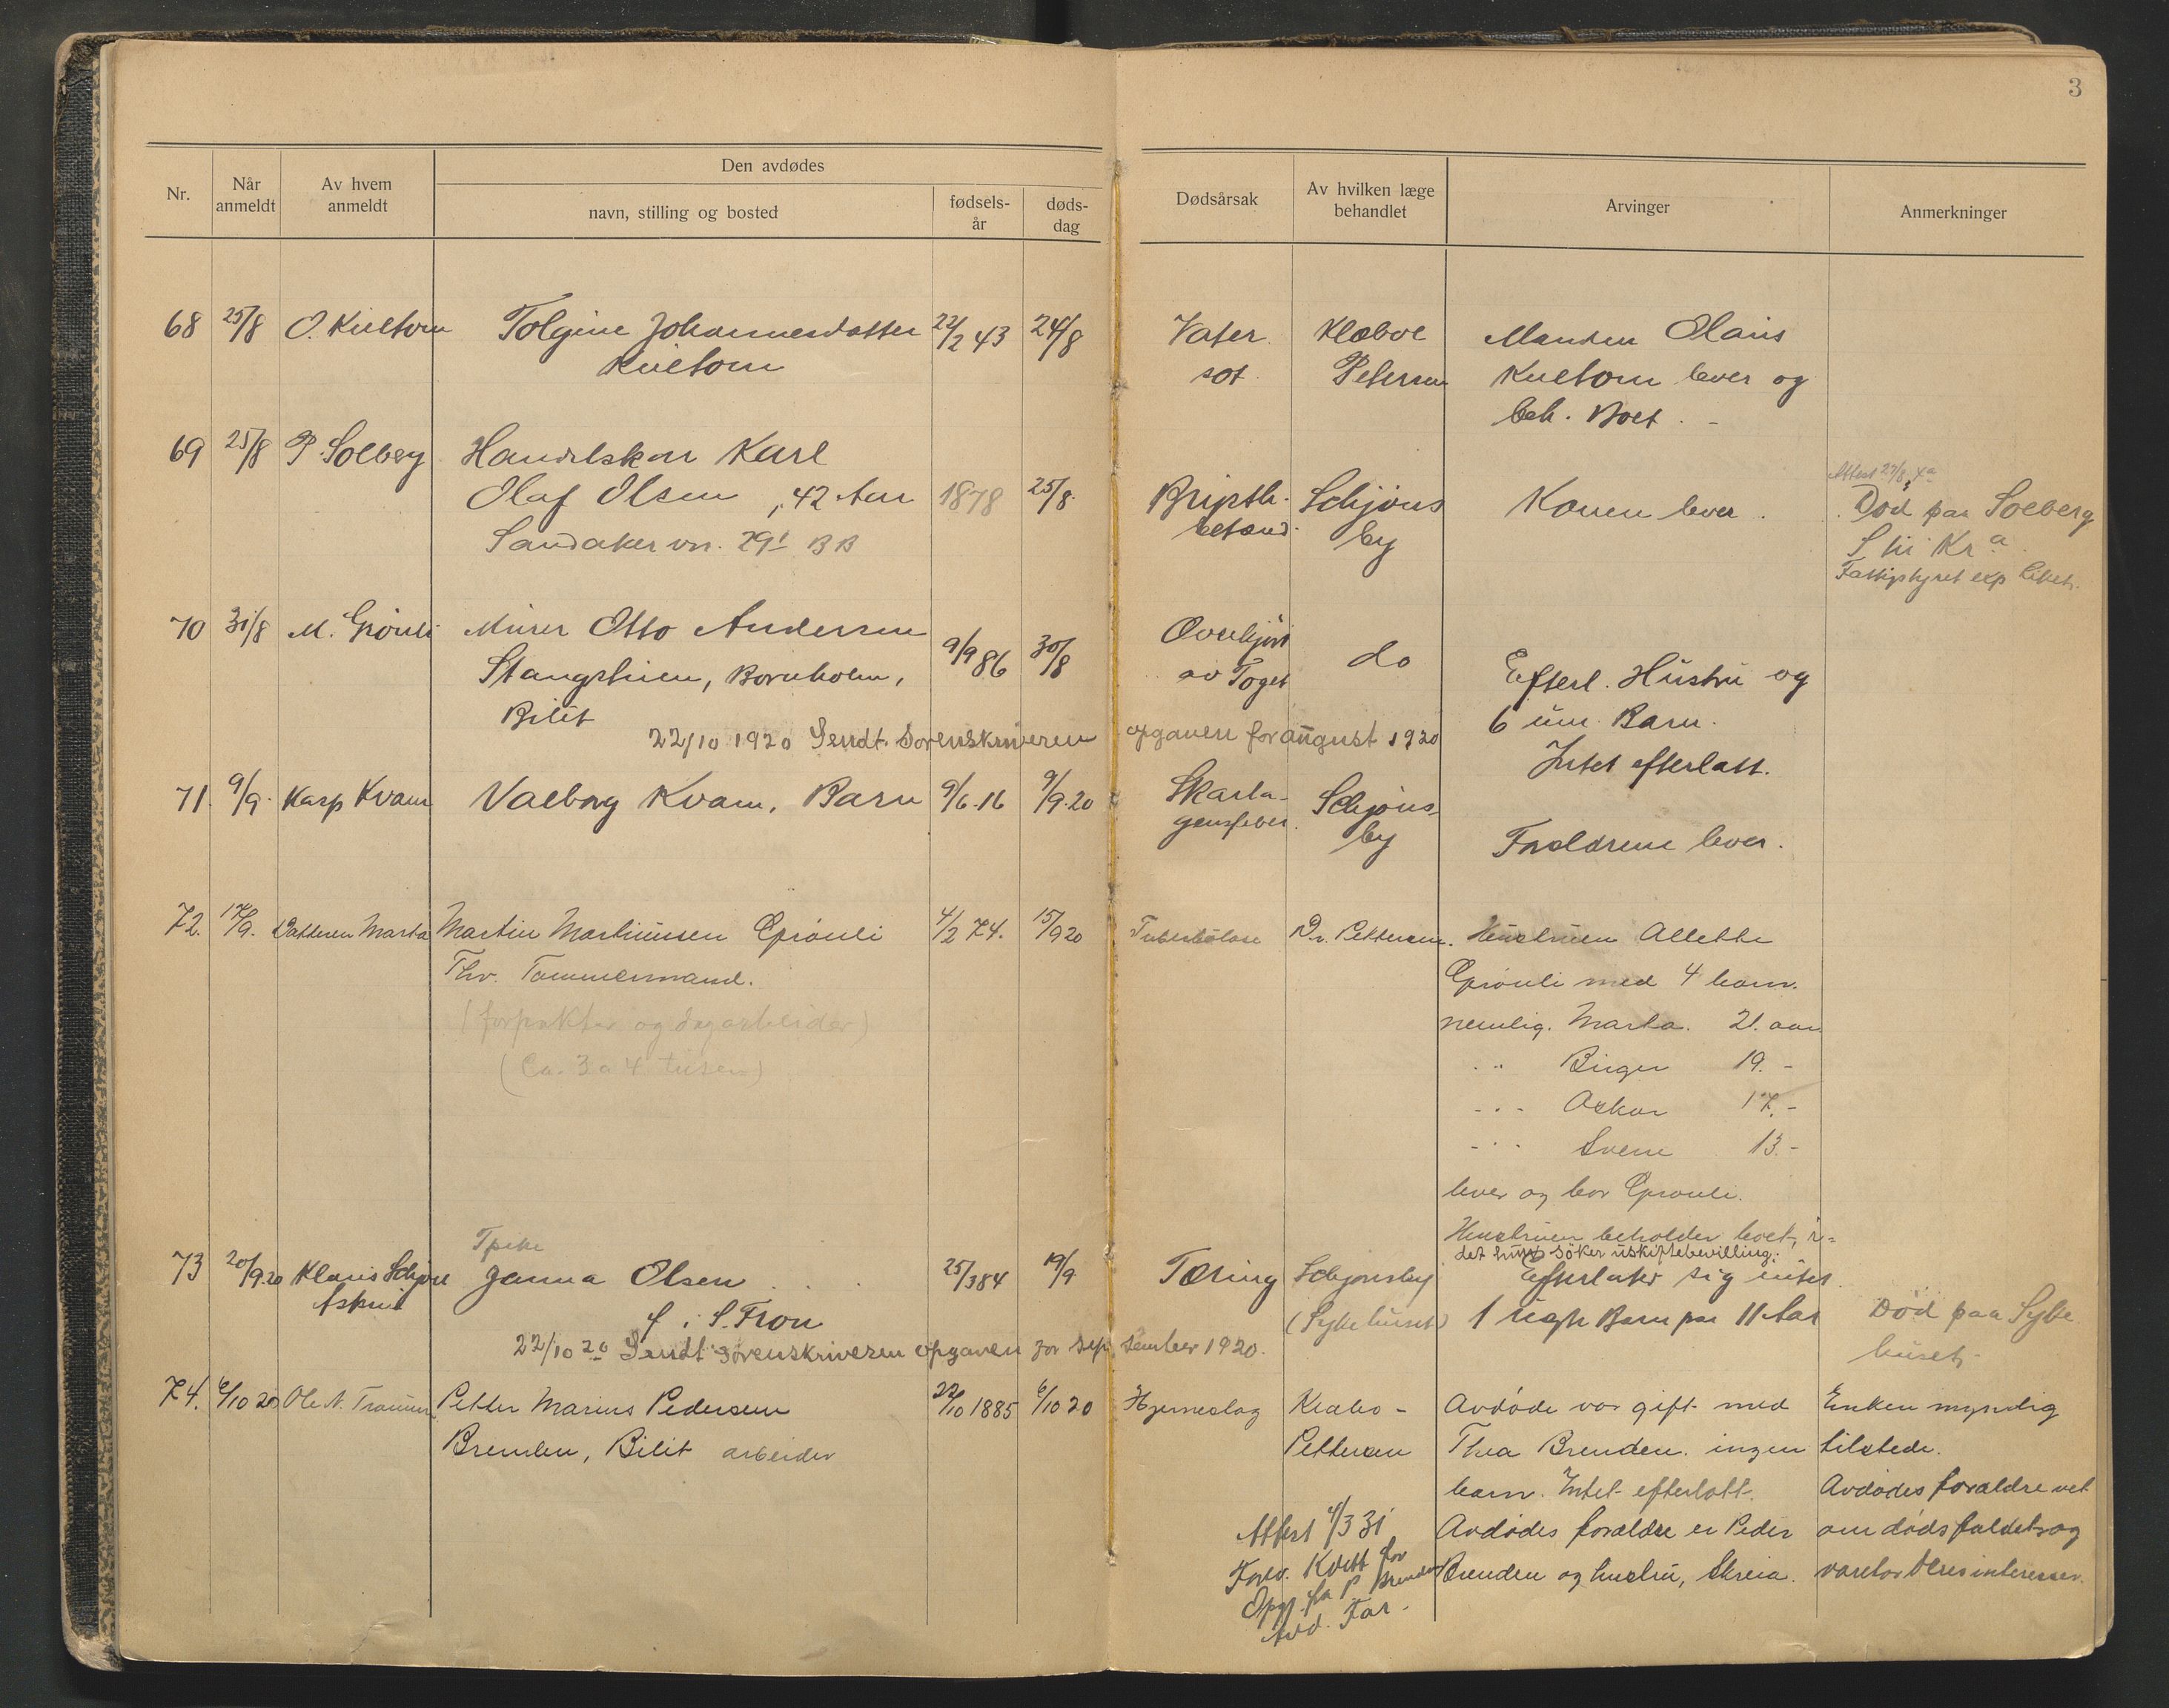 3
Nr.
Når anmeldt
Av hvem anmeldt
Den avdødes
navn, stilling og bosted
fødsels-år
døds-dag
Dødsårsak
Av hvilken læge behandlet
Arvinger
Anmerkninger
68 25/8 O. Kveltom Tolgine Johannesdatter 22/2 43 24/8 Vater Klæboe Manden Olaus
Kveltom sot Petersen Kveltom lever og
beh. Boet. -
69 25/8 P. Solberg Handelskar Karl
Olaf Olsen, 42 Aar 1878 25/8 Schjøns Konen lever.
Sandaker vn. 29 by
Attest 27/8
Død paa Solberg
S til Kr.a
70 31/8 M. Grønli Murer Otto Andersen 9/9 86 30/8 Overkjørt do
Stangstuen, Bornholm, av Toget Efterl. Hustru og
Bilit 6 um. Barn.
22/10 1920 Sendt Sorenskriveren opgaven for august 1920
Intet efterlatt.
71. 9/9. Kasp Kvam Valborg Kvam, Barn 9/6-16 9/9-20 Skarla- Schjøns
gensfeber. by Forældrene lever.
72. 17/9. Datteren Marta Martin Martinusen Grønli 4/2 74. 15/9 20 Tuberkulose Dr. Pettersen. Hustruen Allette
Thv. Tømmermand. Grønli med 4 barn.
(forpakter og dagarbeider) nemlig. Marta. 21. aar
(Ca. 3 a 4 tusen) " Birger 19. -
- " - Oskar 17. -
- " - Sverre 13. -
lever og bor Grønli.
Hustruen beholder boet, i=
det hun søker uskiftebevilling.
73 20/9 20 Klaus Schjøll Tpike
Janna Olsen 25/3 84 19/9 Tæring Schjønsby Efterlater sig intet
f. i S. Fron (Sykehuset) 1 uegte Barn paa 11 Aar Død paa Syke
huset,
22/10 20 Sendt Sorenskriveren opgaven for september 1920.
74. 6/10 20 Ole N. Petter Marius Pedersen 22/10 1885 6/10 20 Hjerneslag Avdøde var gift med Enken myndig
Brenden, Bilit arbeider Pettersen Thea Brenden. ingen tilstede.
barn. Intet efterlatt. Avdødes forældre vet
Attest 4/3 31 Avdødes forældre er Peder om dødsfaldet og
Brenden og hustru, Skreia. varetar deres interesser.
Avd. Far.